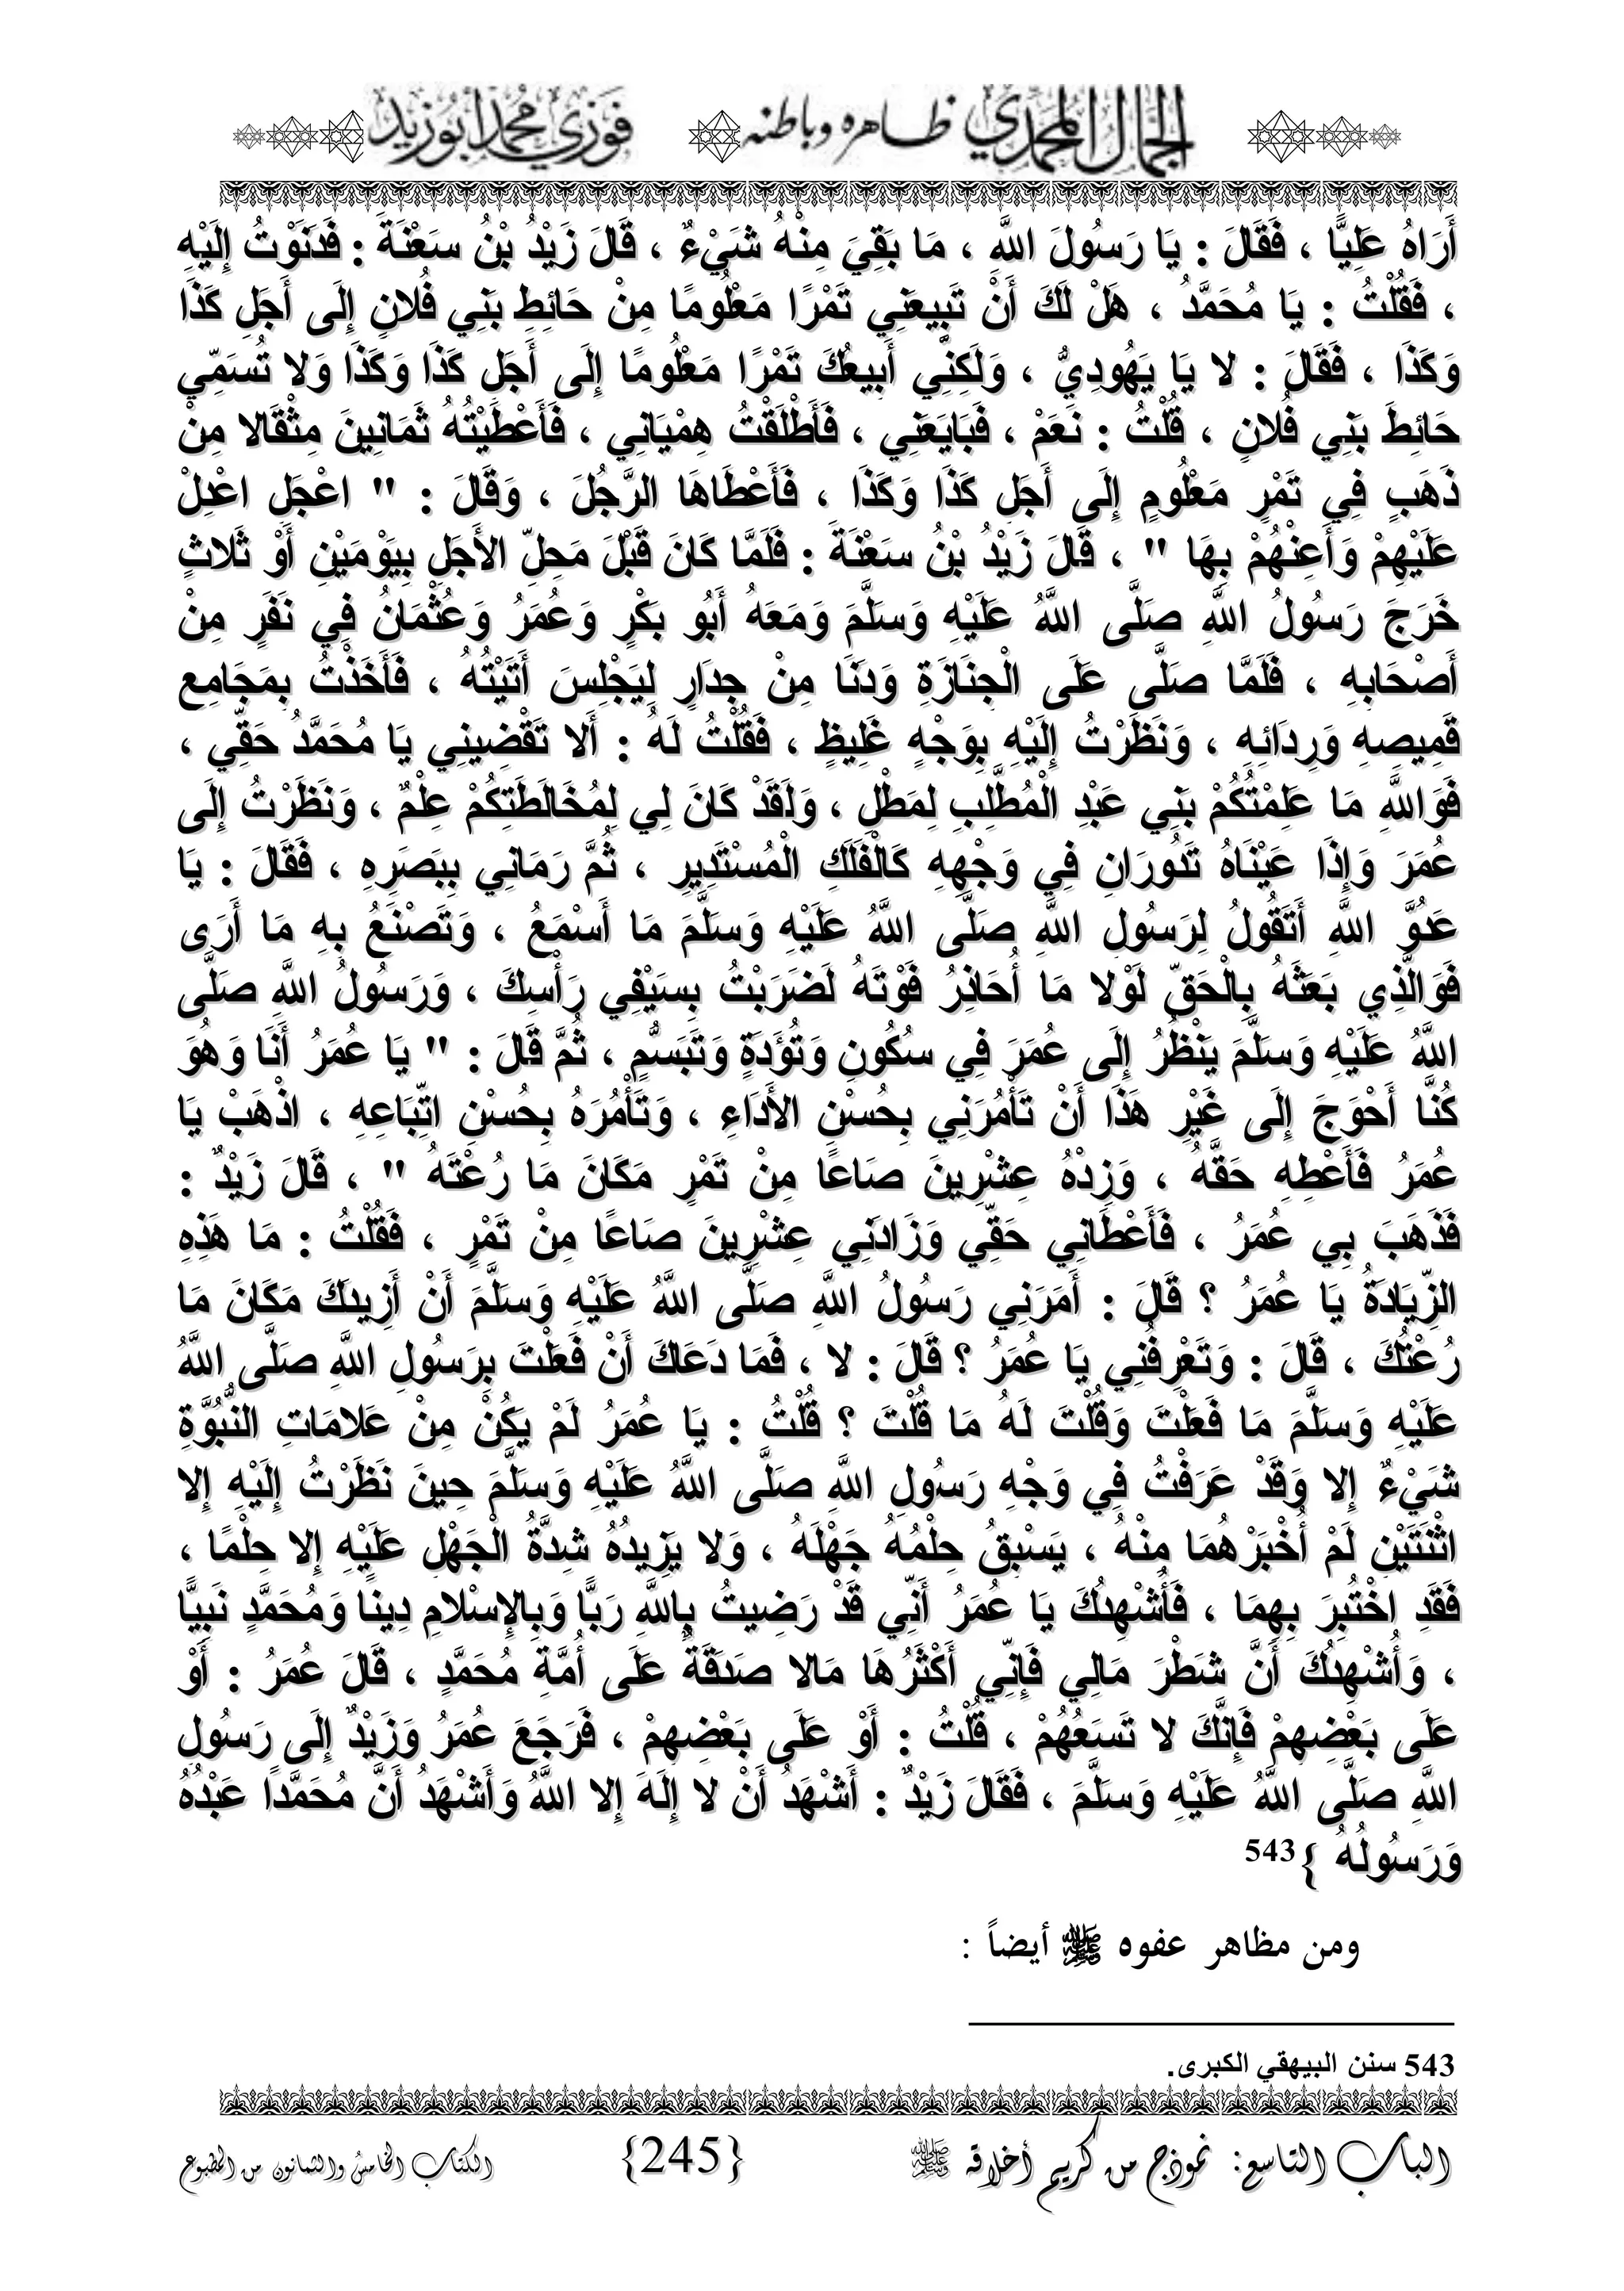 الجمال المحمدي ظاهره وباطنه فوزي محمد أبوزيد
أَرَاهُ عَلِيًّا ، فَقَالَ : يَا رَسُولَ اللَّهِ ، مَا بَقِيَ مِنْهُ شَيْءٌ ، قَالَ زَيْدُ بْنُ سَعْنَةَ : فَدَنَوْتُ إِلَيْهِ
، فَقُلْتُ : يَا مُحَمَّدُ ، هَلْ لَكَ أَنْ تَبِيعَنِي تَمْرًا مَعْلُومًا مِنْ حَائِطِ بَنِي فُلانٍ إِلَى أَجَلِ كَذَا
وَكَذَا ، فَقَالَ : لا يَا يَهُودِيُّ ، وَلَكِنِّي أَبِيعُكَ تَمْرًا مَعْلُومًا إِلَى أَجَلِ كَذَا وَكَذَا وَلا تُسَمِّي
حَائِطَ بَنِي فُلانٍ ، قُلْتُ : نَعَمْ ، فَبَايَعَنِي ، فَأَطْلَقْتُ هِمْيَانِي ، فَأَعْطَيْتُهُ ثَمَانِينَ مِثْقَالا مِنْ
ذَهَبٍ فِي تَمْرٍ مَعْلُومٍ إِلَى أَجَلِ كَذَا وَكَذَا ، فَأَعْطَاهَا الرَّجُلَ ، وَقَالَ : " اعْجَلِ اعْدِلْ
عَلَيْهِمْ وَأَعِنْهُمْ بِهَا " ، قَالَ زَيْدُ بْنُ سَعْنَةَ : فَلَمَّا كَانَ قَبْلَ مَحِلِّ الأَجَلِ بِيَوْمَيْنِ أَوْ ثَلاثٍ
خَرَجَ رَسُولُ اللَّهِ صَلَّى اللَّهُ عَلَيْهِ وَسَلَّمَ وَمَعَهُ أَبُو بَكْرٍ وَعُمَرُ وَعُثْمَانُ فِي نَفَرٍ مِنْ
أَصْحَابِهِ ، فَلَمَّا صَلَّى عَلَى الْجِنَازَةِ وَدَنَا مِنْ جِدَارٍ لِيَجْلِسَ أَتَيْتُهُ ، فَأَخَذْتُ بِمَجَامِعِ
قَمِيصِهِ وَرِدَائِهِ ، وَنَظَرْتُ إِلَيْهِ بِوَجْهٍ غَلِيظٍ ، فَقُلْتُ لَهُ : أَلا تَقْضِينِي يَا مُحَمَّدُ حَقِّي ،
فَوَاللَّهِ مَا عَلِمْتُكُمْ بَنِي عَبْدِ الْمُطَّلِبِ لِمَطْلٍ ، وَلَقَدْ كَانَ لِي لِمُخَالَطَتِكُمْ عِلْمٌ ، وَنَظَرْتُ إِلَى
عُمَرَ وَإِذَا عَيْنَاهُ تَدُورَانِ فِي وَجْهِهِ كَالْفَلَكِ الْمُسْتَدِيرِ ، ثُمَّ رَمَانِي بِبَصَرِهِ ، فَقَالَ : يَا
عَدُوَّ اللَّهِ أَتَقُولُ لِرَسُولِ اللَّهِ صَلَّى اللَّهُ عَلَيْهِ وَسَلَّمَ مَا أَسْمَعُ ، وَتَصْنَعُ بِهِ مَا أَرَى
فَوَالَّذِي بَعَثَهُ بِالْحَقِّ لَوْلا مَا أُحَاذِرُ فَوْتَهُ لَضَرَبْتُ بِسَيْفِي رَأْسِكَ ، وَرَسُولُ اللَّهِ صَلَّى
اللَّهُ عَلَيْهِ وَسَلَّمَ يَنْظُرُ إِلَى عُمَرَ فِي سُكُونِ وَتُؤَدَةٍ وَتَبَسُّمٍ ، ثُمَّ قَالَ : " يَا عُمَرُ أَنَا وَهُوَ
كُنَّا أَحْوَجَ إِلَى غَيْرِ هَذَا أَنْ تَأْمُرَنِي بِحُسْنِ الأَدَاءِ ، وَتَأْمُرَهُ بِحُسْنِ اتِّبَاعِهِ ، اذْهَبْ يَا
عُمَرُ فَأَعْطِهِ حَقَّهُ ، وَزِدْهُ عِشْرِينَ صَاعًا مِنْ تَمْرٍ مَكَانَ مَا رُعْتَهُ " ، قَالَ زَيْدٌ :
فَذَهَبَ بِي عُمَرُ ، فَأَعْطَانِي حَقِّي وَزَادَنِي عِشْرِينَ صَاعًا مِنْ تَمْرٍ ، فَقُلْتُ : مَا هَذِهِ
الزِّيَادَةُ يَا عُمَرُ ؟ قَالَ : أَمَرَنِي رَسُولُ اللَّهِ صَلَّى اللَّهُ عَلَيْهِ وَسَلَّمَ أَنْ أَزِيدَكَ مَكَانَ مَا
رُعْتُكَ ، قَالَ : وَتَعْرِفُنِي يَا عُمَرُ ؟ قَالَ : لا ، فَمَا دَعَاكَ أَنْ فَعَلْتَ بِرَسُولِ اللَّهِ صَلَّى اللَّهُ
عَلَيْهِ وَسَلَّمَ مَا فَعَلْتَ وَقُلْتَ لَهُ مَا قُلْتَ ؟ قُلْتُ : يَا عُمَرُ لَمْ يَكُنْ مِنْ عَلامَاتِ النُّبُوَّةِ
شَيْءٌ إِلا وَقَدْ عَرَفْتُ فِي وَجْهِ رَسُولِ اللَّهِ صَلَّى اللَّهُ عَلَيْهِ وَسَلَّمَ حِينَ نَظَرْتُ إِلَيْهِ إِلا
اثْنَتَيْنِ لَمْ أُخْبَرْهُمَا مِنْهُ ، يَسْبِقُ حِلْمُهُ جَهْلَهُ ، وَلا يَزِيدُهُ شِدَّةُ الْجَهْلِ عَلَيْهِ إِلا حِلْمًا ،
فَقَدِ اخْتُبِرَ بِهِمَا ، فَأُشْهِدُكَ يَا عُمَرُ أَنِّي قَدْ رَضِيتُ بِاللَّهِ رَبًّا وَبِالإِسْلامِ دِينًا وَمُحَمَّدٍ نَبِيًّا
، وَأُشْهِدُكَ أَنَّ شَطْرَ مَالِي فَإِنِّي أَكْثَرُهَا مَالا صَدَقَةٌ عَلَى أُمَّةِ مُحَمَّدٍ ، قَالَ عُمَرُ : أَوْ
عَلَى بَعْضِهِمْ فَإِنَّكَ لا تَسَعُهُمْ ، قُلْتُ : أَوْ عَلَى بَعْضِهِمْ ، فَرَجَعَ عُمَرُ وَزَيْدٌ إِلَى رَسُولِ
اللَّهِ صَلَّى اللَّهُ عَلَيْهِ وَسَلَّمَ ، فَقَالَ زَيْدٌ : أَشْهَدُ أَنْ لا إِلَهَ إِلا اللَّهُ وَأَشْهَدُ أَنَّ مُحَمَّدًا عَبْدُهُ
وَرَسُولُهُ }543
ومن مظاهر عفوه ﷺ أيضاً :
543 سنن البيهقي الكبرى.
الباب التاسع: نموذج من كريم أخلاقه ﷺ {245} الكتاب الخامس والثمانون من المطبوع